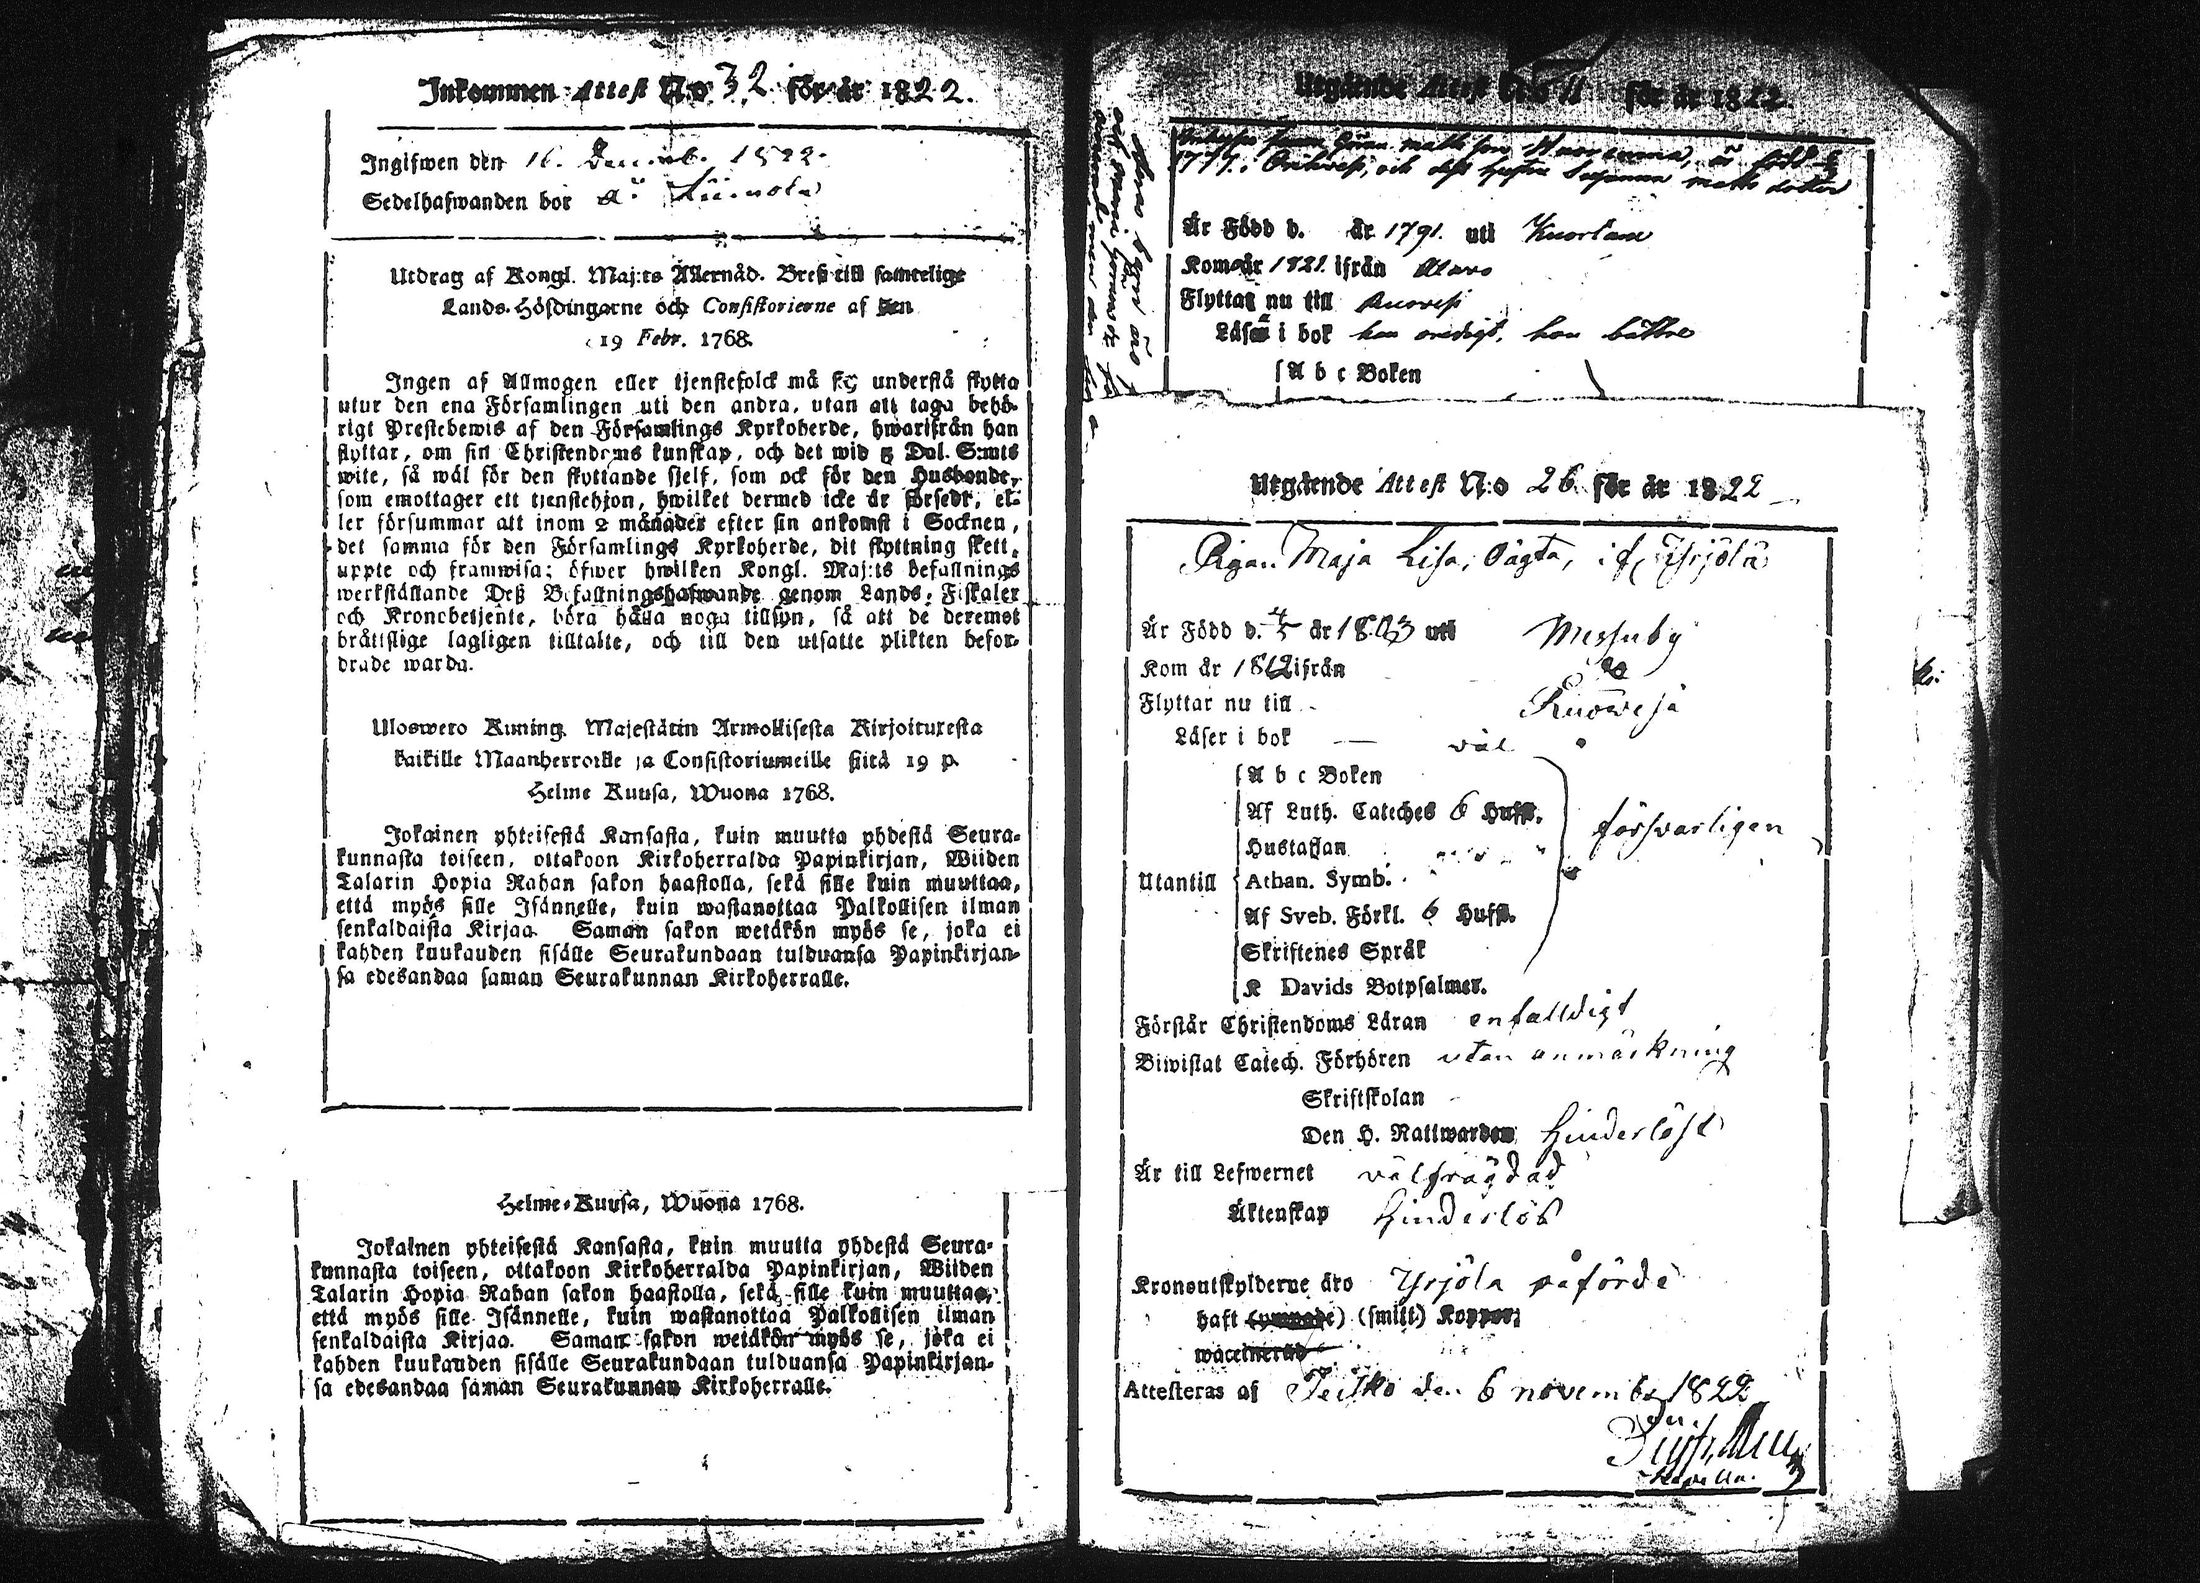 Inkommen Attest N:o 32 för år 1822.
Ingifwen den 16. Decemb. 1822.
Sedelhafwanden bor
Utdrag af Kongl. Maj:ts Allernåd. Bref till samtelige
Lands-Höfdingarne och Consistorierne af den
19 Febr. 1768.
Ingen af Allmogen eller tjenstefolck må sig understå flytta
utur den ena Församlingen uti den andra, utan att taga behö-
rigt Prestebewis af den Församlings Kyrkoherde, hwarifrån han
flyttar, om sin Christendoms kunskap, och det wid 5 Dal. S:mts
wite, så wäl för den flyttande sjelf, som ock för den Husbonde,
som emottager ett tjenstehjon, hwilket dermed icke är försedt, el-
ler försummar att inom 2 månader efter sin ankomst i Socknen,
det samma för den Församlings Kyrkoherde, dit flyttning skett,
uppte och framwisa; öfwer hwilken Kongl. Maj:ts befallnings
werkställande Deß Befallningshafwande genom Lands-Fiskaler
och Kronobetjente, böra hålla noga tillsyn, så att de deremot
bråttslige lagligen tilltalte, och till den utsatte plikten befor-
drade warda.
Uloswero Kuning. Majestätin Armollisesta Kirjoituresta
kaikille Maanherroille ja Consistoriumeille siitä 19 p.
Helme Kuusa, Wuona 1768.
Jokainen yhteisestä Kansasta, kuin muutta yhdestä Seura-
kunnasta toiseen, ottakoon Kirkoherralda Papinkirjan, Wiiden
Talarin Hopia Rahan sakon haastolla, sekä sille kuin muuttaa,
että myös sille Isännelle, kuin wastanottaa Palkollisen ilman
senkaldaista Kirjaa. Saman sakon wetäkön myös se, joka ei
kahden kuukauden sisälle Seurakundaan tulduansa Papinkirjan-
sa edesandaa saman Seurakunnan Kirkoherralle.
Helme-Kuusa, Wuona 1768.
Jokainen yhteisestä Kansasta, kuin muutta yhdestä Seura-
kunnasta toiseen, ottakoon Kirkoherralda Papinkirjan, Wiiden
Talarin Hopia Rahan sakon haastolla, sekä sille kuin muuttaa,
että myös sille Isännelle, kuin wastanottaa Palkollisen ilman
senkaldaista Kirjaa. Saman sakon wetäkön myös se, joka ei
kahden kuukauden sisälle Seurakundaan tulduansa Papinkirjan-
sa edesandaa saman Seurakunnan Kirkoherralle.
Utgående Attest N:o 11 för år 1822.
Är Född d. år 1791. uti
Kom år 1821. ifrån
Flyttar nu till Ruovesi
Läser i bok han oredigt, hon bättre
A b c Boken
Utgående Attest N:o 26 för år 1822
Pigan Maja Lisa, if. Yrjölä
Är Född d. 4/5 år 1803 uti Messuby
Kom år 1812 ifrån do
Flyttar nu till Ruowesi
Läser i bok — väl
A b c Boken
Af Luth. Cateches 6 Hufst. försvarligen
Hustaflan
Utantill Athan. Symb.
Af Sveb. Förkl. 6 Hufst.
Skriftenes Språk
K Davids Botpsalmer.
Förstår Christendoms Läran enfalldigt
Biwistat Catech. Förhören utan anmärkning
Skriftskolan
Den H. Nattwarden hinderlöst
Är till Lefwernet välfrägdad
Äktenskap hinderlös
Kronoutskylderne äro Yrjölä påförde
haft (ympade) (smitt) Koppor;
waccinerad
Attesteras af Teisko den 6 november 1822